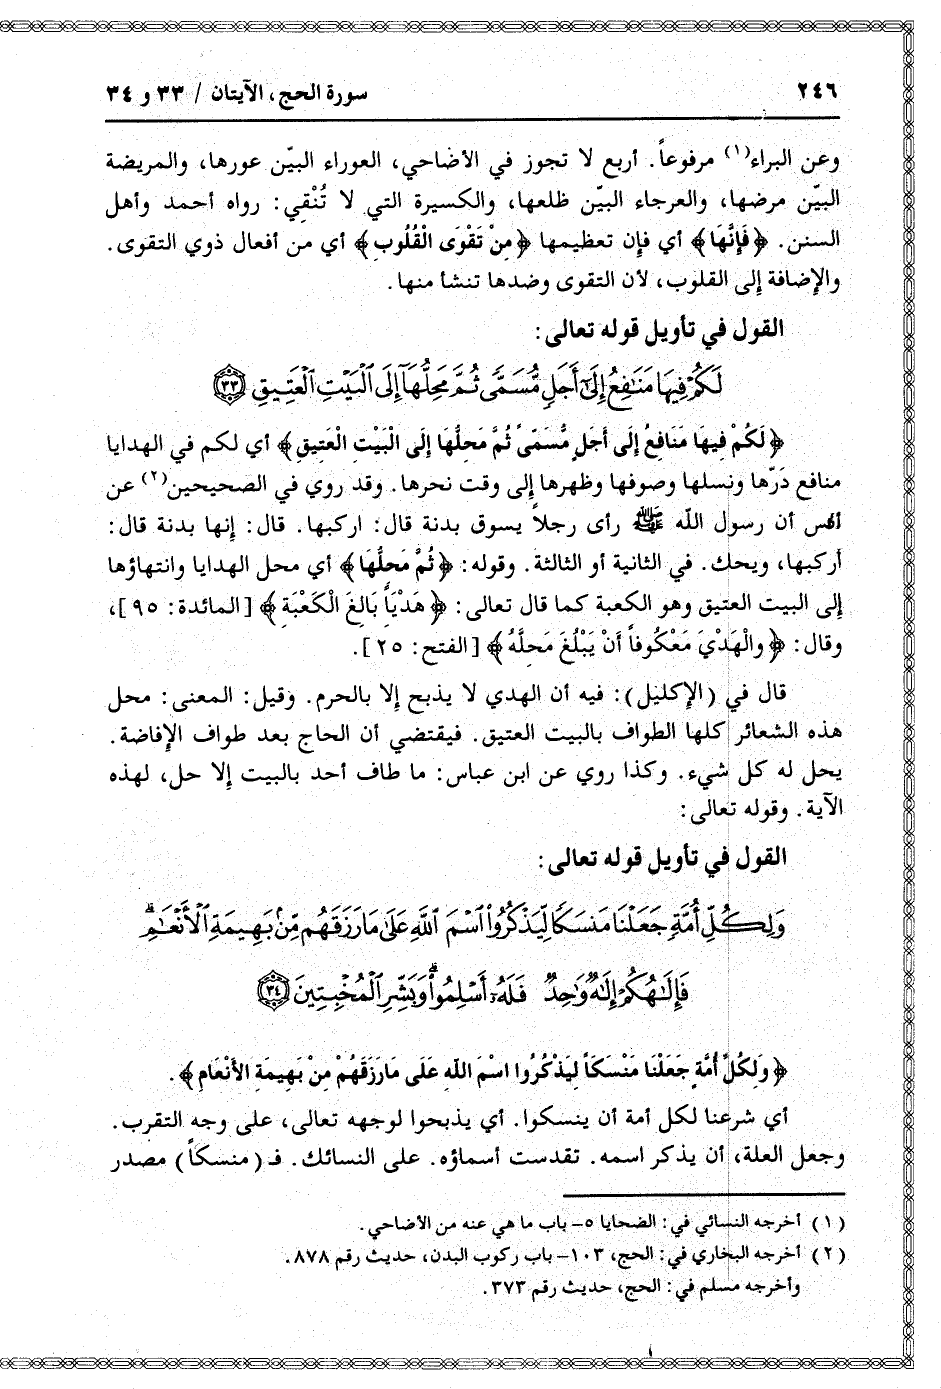 ٢٤٦ سورة الحج، الآيتان / ٣٣ و ٣٤
وعن البراء(١) مرفوعاً. أربع لا تجوز في الأضاحي، العوراء البيّن عورها، والمريضة
البيّن مرضها، والعرجاء البيّن ظلعها، والكسيرة التي لا تُنْقِي: رواه أحمد وأهل
السنن. ﴿فَإِنَّهَا﴾ أي فإن تعظيمها ﴿مِنْ تَقْوَى الْقُلُوبِ﴾ أي من أفعال ذوي التقوى.
والإضافة إلى القلوب، لأن التقوى وضدها تنشأ منها.
القول في تأويل قوله تعالى:
لَكُمْ فِيهَا مَنَٰفِعُ إِلَىٰٓ أَجَلٍ مُّسَمًّى ثُمَّ مَحِلُّهَآ إِلَى ٱلْبَيْتِ ٱلْعَتِيقِ ٣٣
﴿لَكُمْ فِيهَا مَنَافِعُ إِلَى أَجَلٍ مُّسَمًّى ثُمَّ مَحِلُّهَا إِلَى الْبَيْتِ الْعَتِيقِ﴾ أي لكم في الهدايا
منافع دَرّها ونسلها وصوفها وظهرها إلى وقت نحرها. وقد روي في الصحيحين(٢) عن
أنس أن رسول الله ﷺ رأى رجلاً يسوق بدنة قال: اركبها. قال: إنها بدنة قال:
أركبها، ويحك. في الثانية أو الثالثة. وقوله: ﴿ثُمَّ مَحِلُّهَا﴾ أي محل الهدايا وانتهاؤها
إلى البيت العتيق وهو الكعبة كما قال تعالى: ﴿هَدْيَاً بَالِغَ الْكَعْبَةِ﴾ [المائدة: ٩٥]،
وقال: ﴿والْهَدْيَ مَعْكُوفاً أَنْ يَبْلُغَ مَحِلَّهُ﴾ [الفتح: ٢٥].
قال في (الإكليل): فيه أن الهدي لا يذبح إلا بالحرم. وقيل: المعنى: محل
هذه الشعائر كلها الطواف بالبيت العتيق. فيقتضي أن الحاج بعد طواف الإفاضة.
يحل له كل شيء. وكذا روي عن ابن عباس: ما طاف أحد بالبيت إلا حل، لهذه
الآية. وقوله تعالى:
القول في تأويل قوله تعالى:
وَلِكُلِّ أُمَّةٍ جَعَلْنَا مَنسَكًا لِّيَذْكُرُوا۟ ٱسْمَ ٱللَّهِ عَلَىٰ مَا رَزَقَهُم مِّنۢ بَهِيمَةِ ٱلْأَنْعَٰمِ ۗ
فَإِلَٰهُكُمْ إِلَٰهٌ وَٰحِدٌ فَلَهُۥٓ أَسْلِمُوا۟ ۗ وَبَشِّرِ ٱلْمُخْبِتِينَ ٣٤
﴿وَلِكُلِّ أُمَّةٍ جَعَلْنَا مَنْسَكَاً لِيَذْكُرُوا اسْمَ اللهِ عَلَى مَا رَزَقَهُمْ مِنْ بَهِيمَةِ الأَنْعَامِ﴾.
أي شرعنا لكل أمة أن ينسكوا. أي يذبحوا لوجهه تعالى، على وجه التقرب.
وجعل العلة، أن يذكر اسمه. تقدست أسماؤه. على النسائك. فـ (منسكاً) مصدر
(١) أخرجه النسائي في: الضحايا ٥- باب ما هي عنه من الأضاحي.
(٢) أخرجه البخاري في: الحج، ١٠٣- باب ركوب البدن، حديث رقم ٨٧٨.
وأخرجه مسلم في: الحج، حديث رقم ٣٧٣.